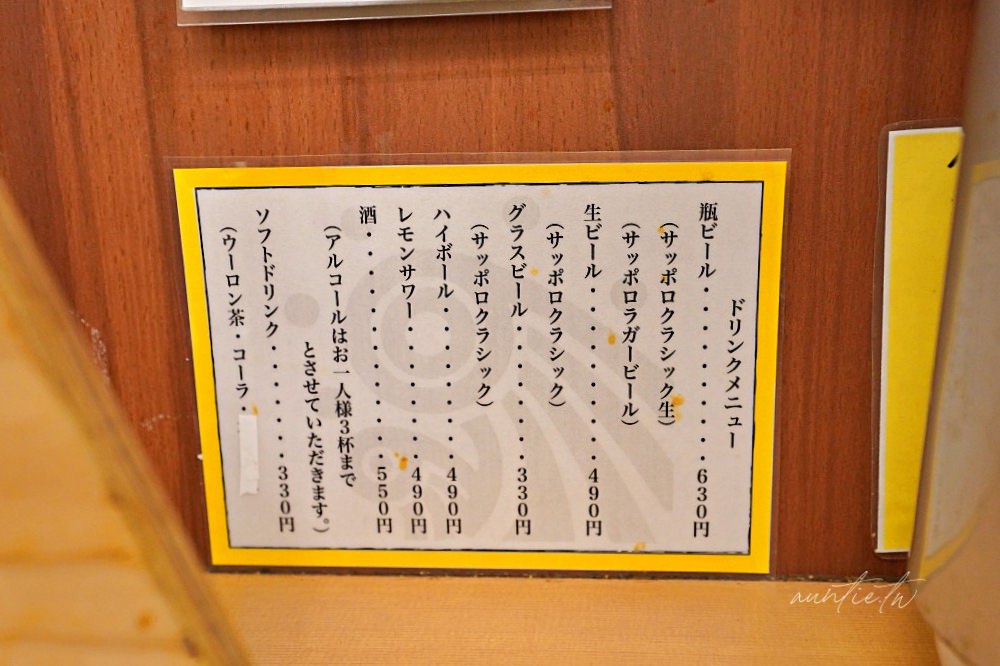 ドリンクメニュー
瓶ビール・・・・・・・・・630円
(サッポロクラシック生)
(サッポロラガービール)
生ビール・・・・・・・・・490円
(サッポロクラシック)
グラスビール・・・・・・・330円
(サッポロクラシック)
ハイボール・・・・・・・・490円
レモンサワー・・・・・・・490円
酒・・・・・・・・・・・・550円
(アルコールはお一人様3杯まで
とさせていただきます。)
ソフトドリンク・・・・・・330円
(ウーロン茶・コーラ・
auntie.tw